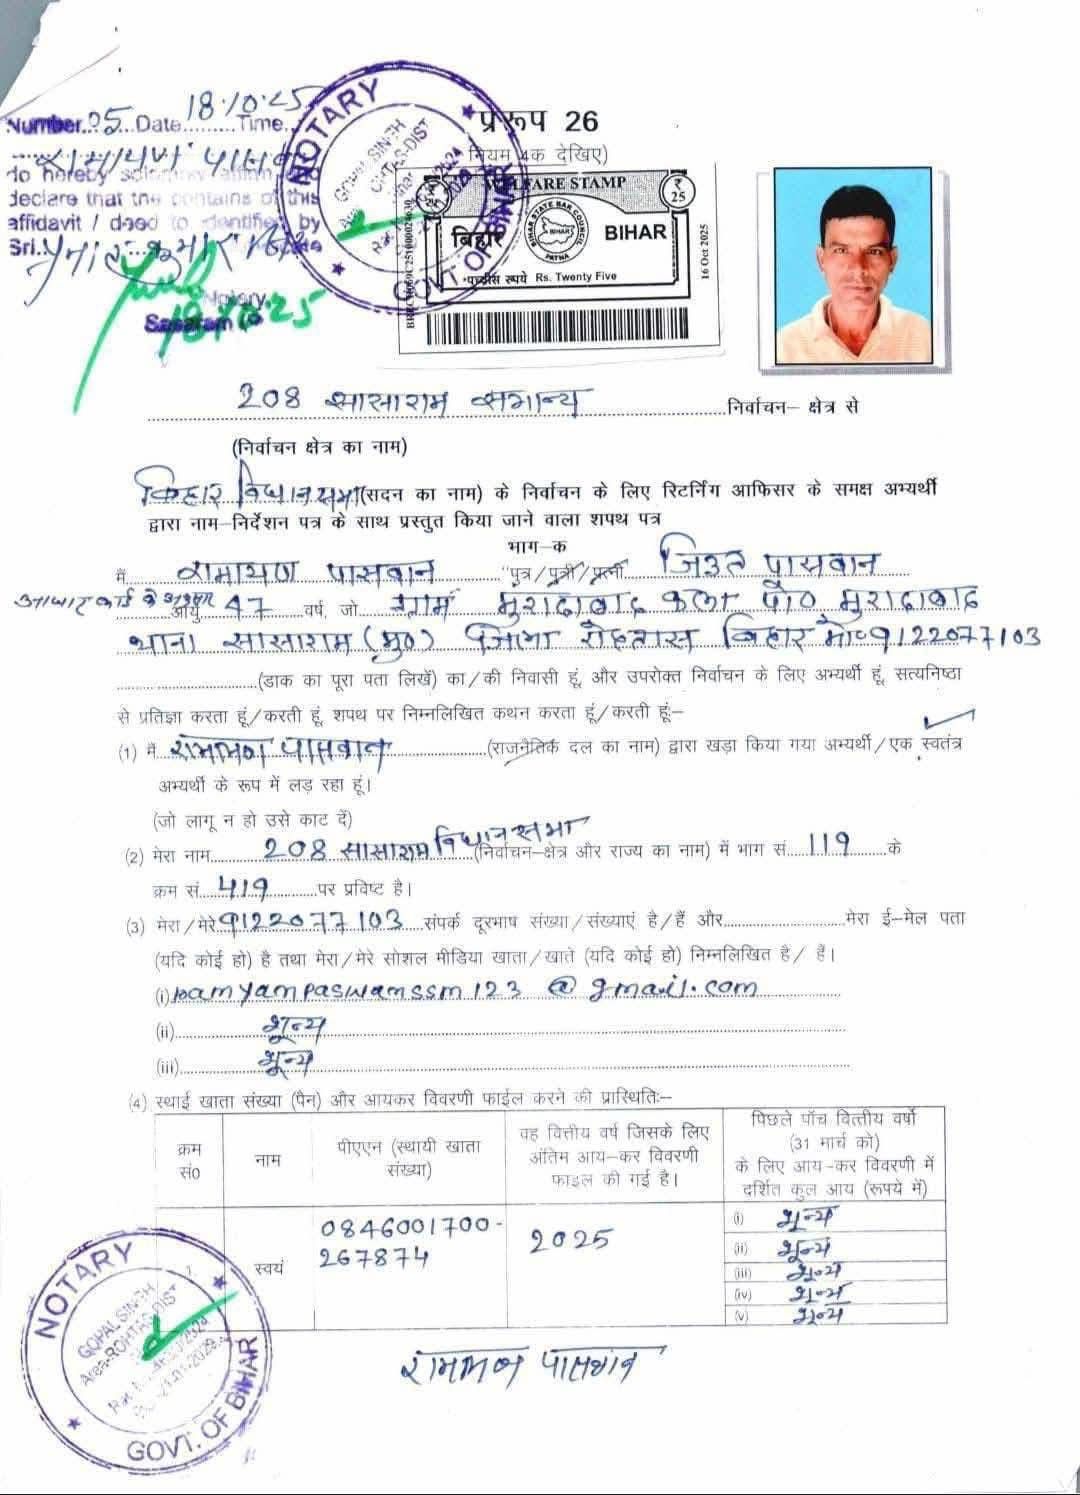 Number 25 Date 18.10.25 Time
do hereby solemnly affirm and
declare that the contains of this
affidavit / deed to identified by
Sri.
Notary
Sasaram
18.10.25
NOTARY
GOPAL SINGH
GOVT. OF BIHAR
प्ररूप 26
(नियम 4क देखिए)
WELFARE STAMP
₹ 25
BIHAR STATE BAR COUNCIL
BIHAR
PATNA
बिहार
BIHAR
पच्चीस रूपये Rs. Twenty Five
16 Oct 2025
208 सासाराम सामान्य निर्वाचन– क्षेत्र से
(निर्वाचन क्षेत्र का नाम)
बिहार विधान सभा (सदन का नाम) के निर्वाचन के लिए रिटर्निंग आफिसर के समक्ष अभ्यर्थी
द्वारा नाम–निर्देशन पत्र के साथ प्रस्तुत किया जाने वाला शपथ पत्र
भाग–क
मैं रामायण पासवान पुत्र/पुत्री/पत्नी जिउत पासवान
आधार कार्ड के अनुसार आयु 47 वर्ष, जो ग्राम मुरादाबाद कला पो० मुरादाबाद
थाना सासाराम (मु०) जिला रोहतास बिहार मो० 9122077103
(डाक का पूरा पता लिखें) का/की निवासी हूं, और उपरोक्त निर्वाचन के लिए अभ्यर्थी हूं, सत्यनिष्ठा
से प्रतिज्ञा करता हूं/करती हूं, शपथ पर निम्नलिखित कथन करता हूं/करती हूंः–
(1) मैं रामायण पासवान (राजनैतिक दल का नाम) द्वारा खड़ा किया गया अभ्यर्थी/एक स्वतंत्र
अभ्यर्थी के रूप में लड़ रहा हूं।
(जो लागू न हो उसे काट दें)
(2) मेरा नाम 208 सासाराम विधान सभा (निर्वाचन–क्षेत्र और राज्य का नाम) में भाग सं. 119 के
क्रम सं. 419 पर प्रविष्ट है।
(3) मेरा/मेरे 9122077103 संपर्क दूरभाष संख्या/संख्याएं है/हैं और मेरा ई–मेल पता
(यदि कोई हो) है तथा मेरा/मेरे सोशल मीडिया खाता/खाते (यदि कोई हो) निम्नलिखित है/ हैं।
(i) ramyampaswamssm123 @ gmail.com
(ii) शून्य
(iii) शून्य
(4) स्थाई खाता संख्या (पैन) और आयकर विवरणी फाईल करने की प्रास्थितिः–
क्रम सं० नाम पीएएन (स्थायी खाता संख्या) वह वित्तीय वर्ष जिसके लिए अंतिम आय–कर विवरणी फाइल की गई है। पिछले पॉच वित्तीय वर्षो (31 मार्च को) के लिए आय–कर विवरणी में दर्शित कुल आय (रूपये में)
स्वयं 0846001700-267874 2025
(i) शून्य
(ii) शून्य
(iii) शून्य
(iv) शून्य
(v) शून्य
रामायण पासवान
NOTARY
GOPAL SINGH
Area-ROHTAS-DIST
GOVT. OF BIHAR